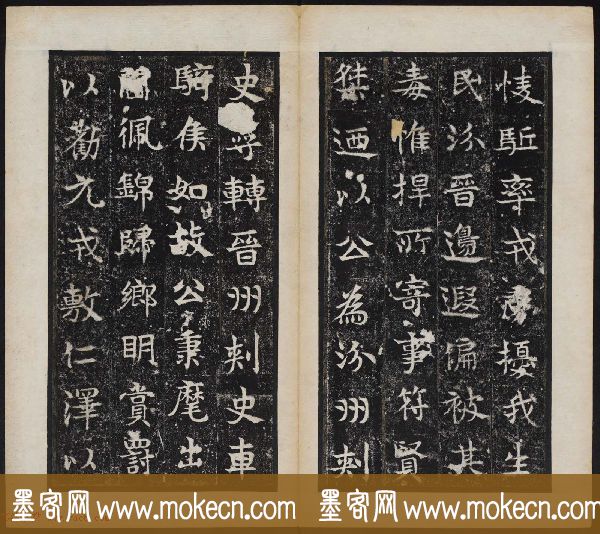 駈率戎擾我生
民汾晉邊遐偏被其
毒惟捍所寄事符賢
桀迺以公為汾州刾
史尋轉晉州刾史車
騎侯如故公秉麾出
佩錦歸鄉明賞罸
以勸元戎敷仁澤以
墨客网 www.mokecn.com 墨客网 www.mokecn.com